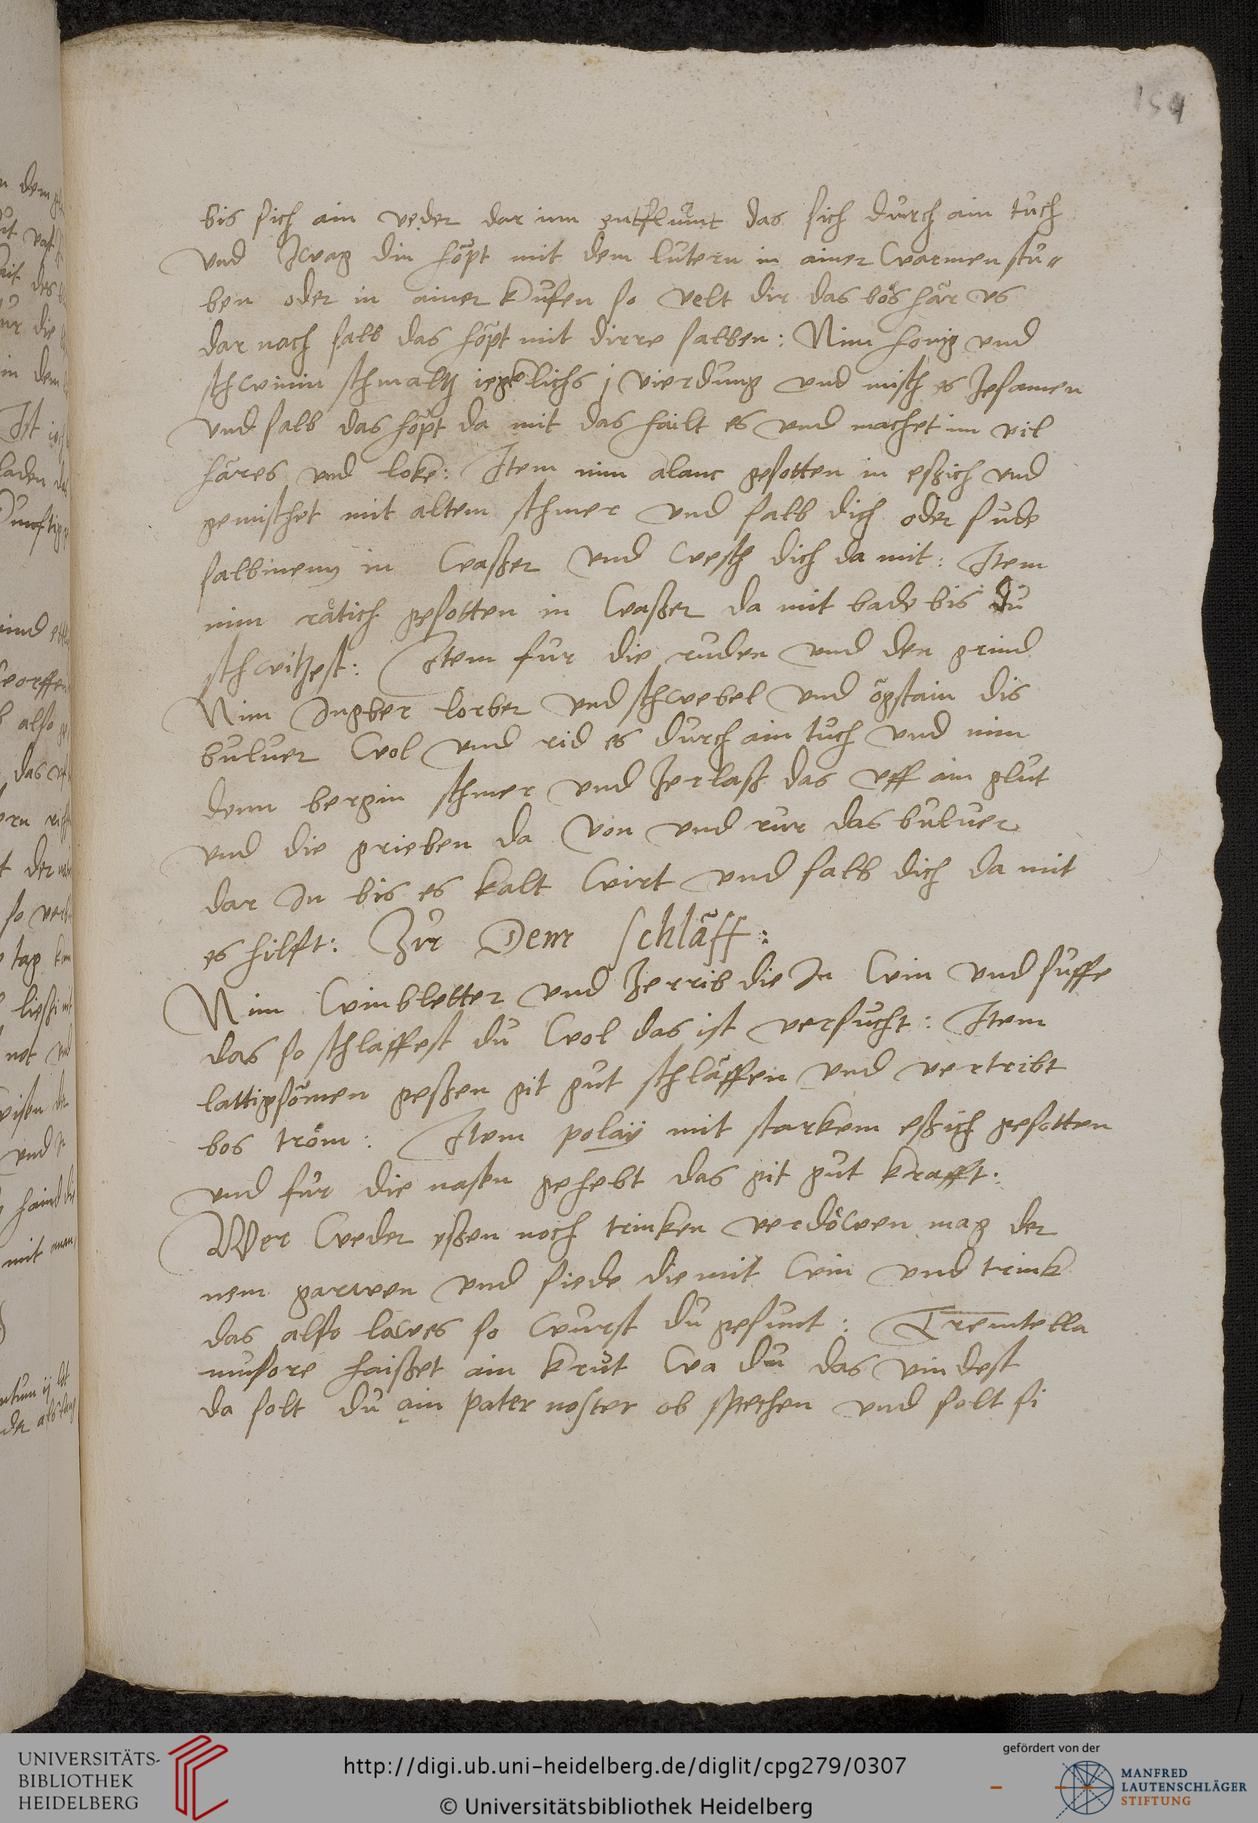 154
bis sich ain veder dar inn entflúmt das sich durch ain tuch
und zwag din höpt mit dem lutern in ainer warmen stu„
ben oder in ainer kufen so velt dir das bös här us
dar nach salb das höpt mit dirre salben: Nim honig und
schwinin schmaltz iegklichs j vierdung und misch es zesamen
und salb das höpt da mit das hailt es und machet im vil
häres und loke: Item nim alant gesotten in eßich und
gemischet mit altem schmer und salb dich oder sude
salbineny in waßer und wesch dich da mit: Item
nim rätich gesotten in waßer da mit bade bis du
schwitzest: Item fur die ruden und den grind
Nim Ingber lorber und schwebel und ögstain dis
buluer wol und rid es durch ain tuch und nim
denn bergin schmer und zerlaß das uff ain glut
und die grieben da von und rur das buluer
dar In bis es kalt wirt und salb dich da mit
es hilfft: Zu Dem schläff:
Nim winbletter und zerrib die In win und suffe
das so schlaffest du wol das ist versucht: Item
lattigsömen geßen git gut schläffen und vertribt
bos tröm: Item polaÿ mit starkem eßich gesotten
und fur die nasen gehebt das git gut krafft:
Wer weder eßen noch trinken verdöwen mag der
nem garwen und siede die mit win und trink
das also lawes so wurst du gesunt: Tremtella
musore haißet ain krut wa du das vindest
da solt du ain pater noster ob sprechen und solt si
UNIVERSITÄTS-
BIBLIOTHEK
HEIDELBERG
http://digi.ub.uni-heidelberg.de/diglit/cpg279/0307
© Universitätsbibliothek Heidelberg
gefördert von der
MANFRED
LAUTENSCHLÄGER
STIFTUNG